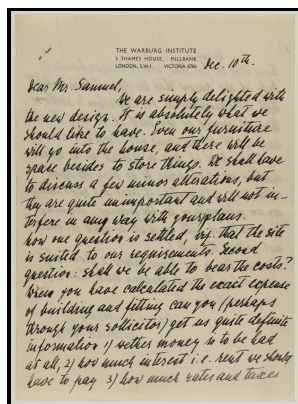 THE WARBURG INSTITUTE
3 THAMES HOUSE, MILLBANK
LONDON, S.W.1. VICTORIA 6786
Dec. 10th.
Dear Mr. Samuel,
We are simply delighted with
the new design. It is absolutely what we
should like to have. Even our furniture
will go into the house, and there will be
spare besides to store things. We shall have
to discuss a few minor alterations, but
they are quite unimportant and will not in-
terfere in any way with your plans.
Now one question is settled, viz. that the site
is suited to our requirements. Second
question: shall we be able to bear the costs?
When you have calculated the exact expense
of building and fitting can you (perhaps
through your sollicitor) get us quite definite
information 1) wether money is to be had
at all, 2) how much interest i.e. rent we should
have to pay 3) how much rates and taxes